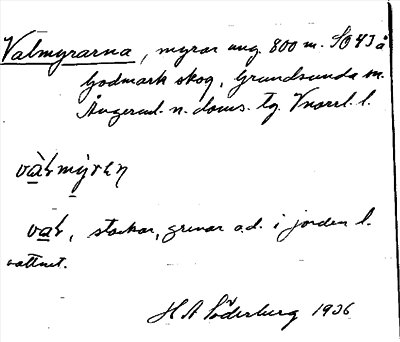 Valmyrarna, myrar ung. 800 m. SO 43 å
Godmark skog, Grundsunda sn.
Ångerml. n. doms. tg. Vnorrl. l.
val, stockar, grenar o.d. i jorden l.
vattnet.
H A Söderberg 1936